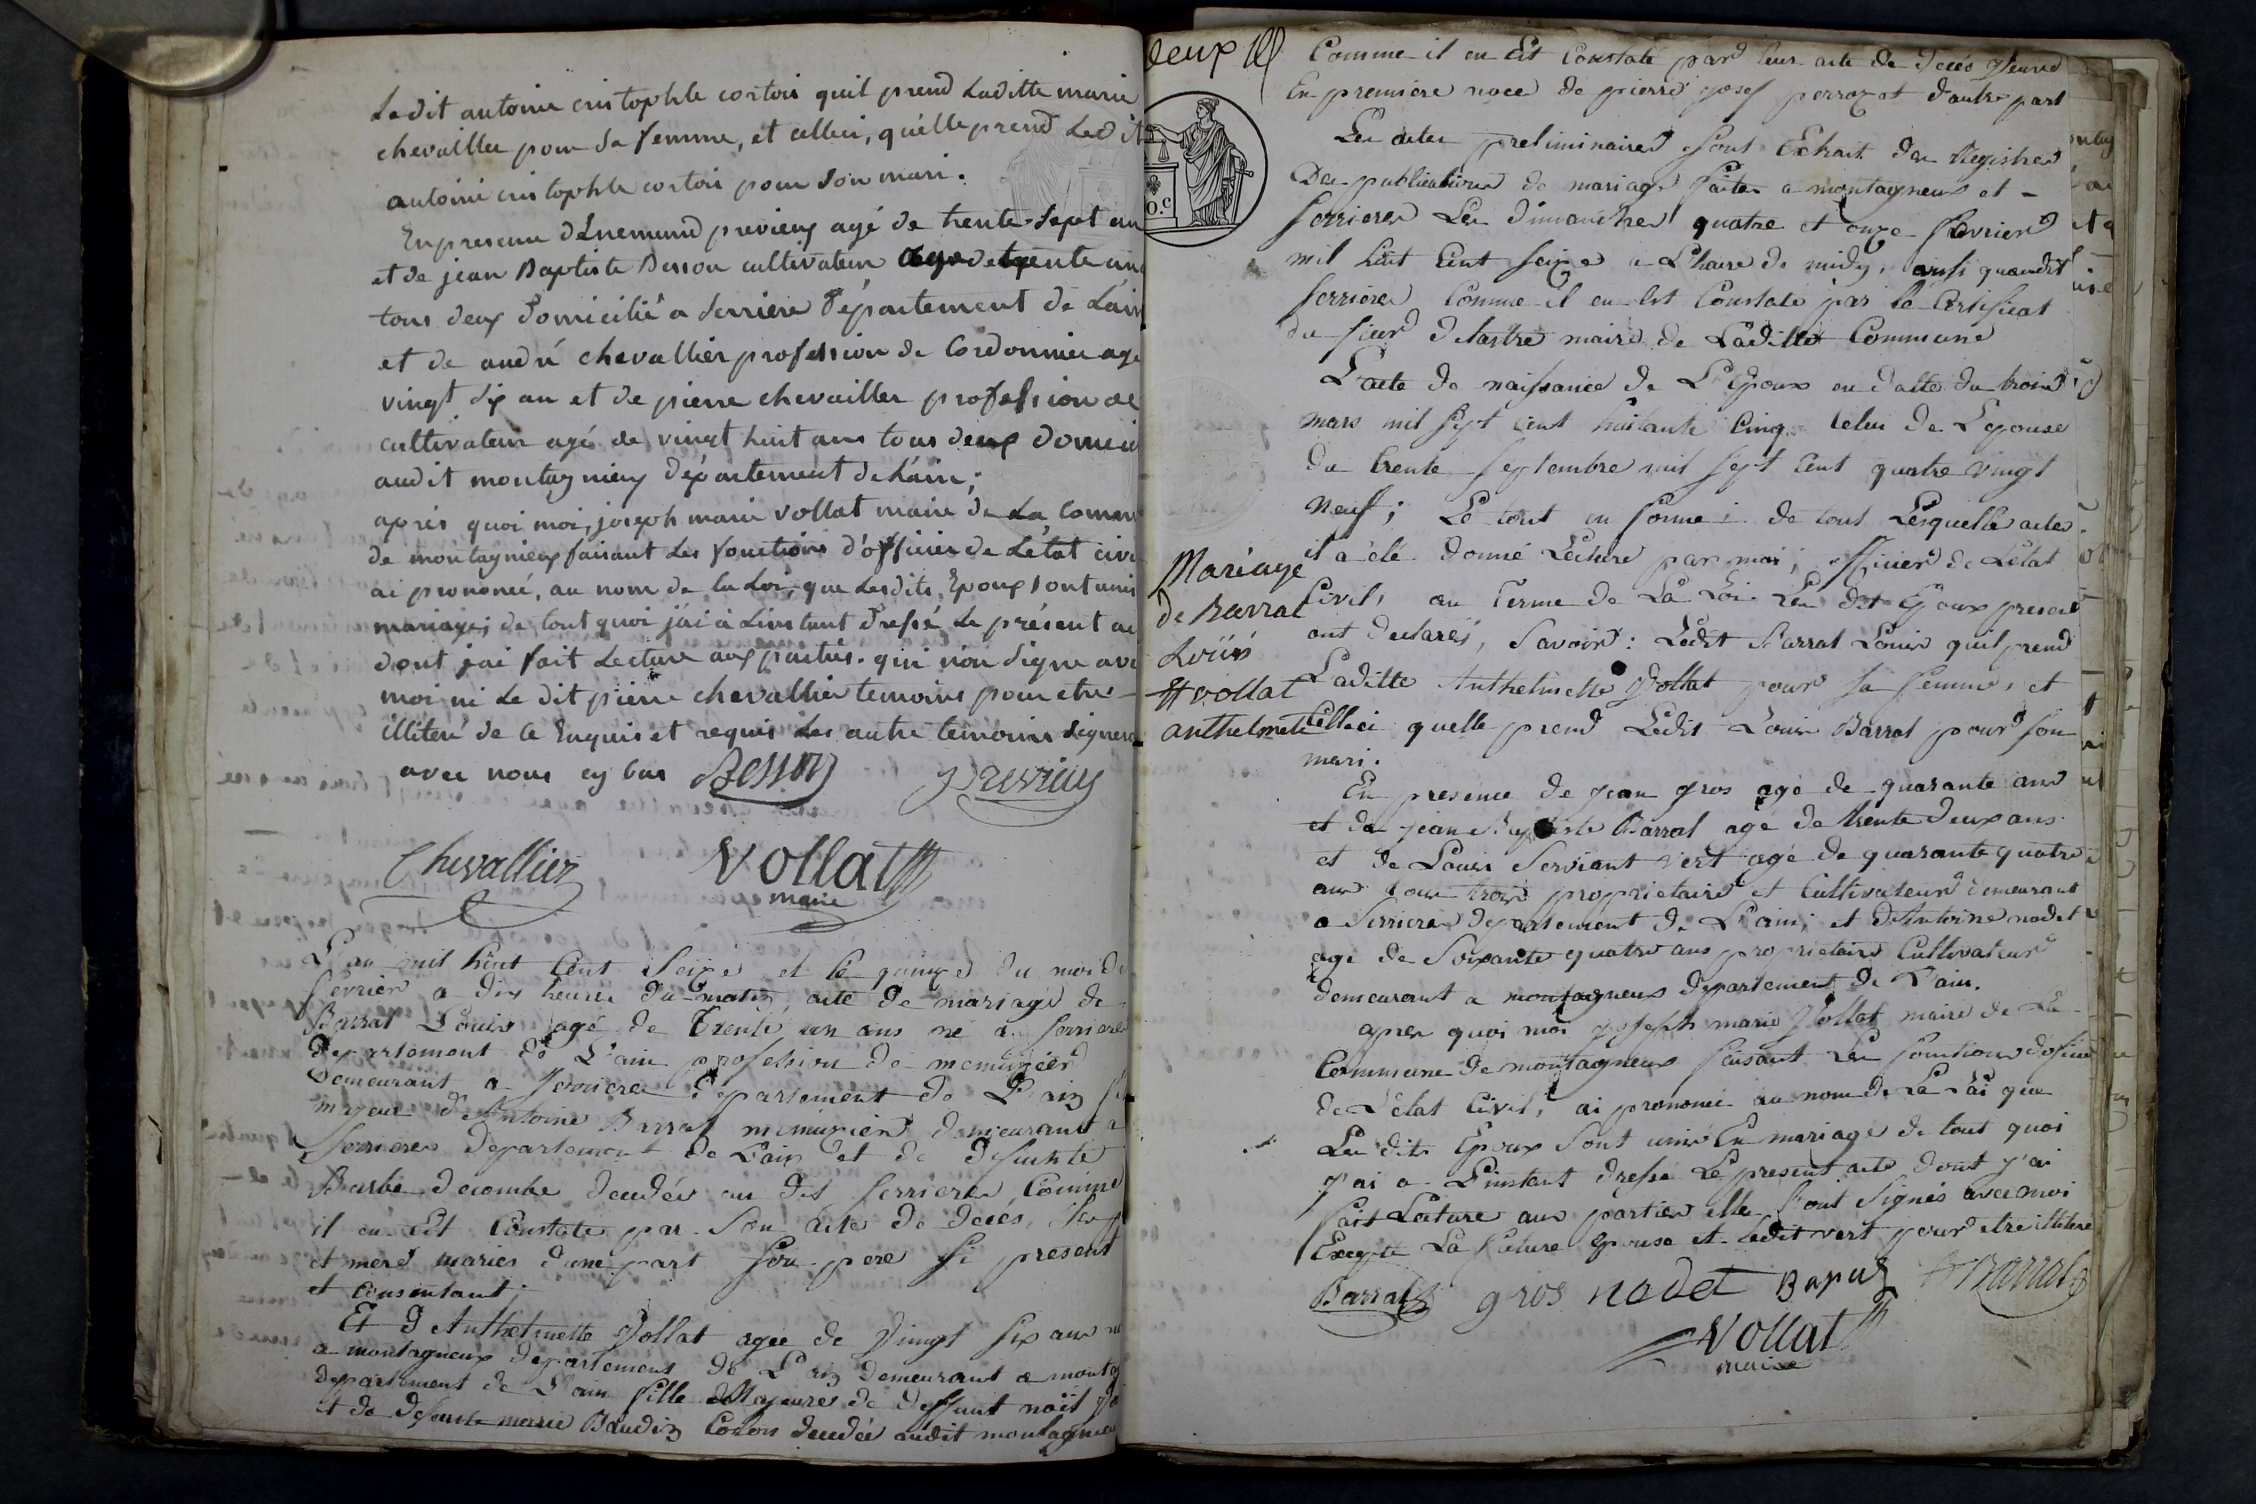 Ledit antoine cristophle cortois quil prend Laditte marie
chevallier pour sa femme, et cellui, quélle prend Ledit
antoine cristophle cortois pour son mari.
En presence dEnemund previeux agé de trente sept an
et de jean Baptiste Besson cultivateur agé de trente un
tous deux domicilié a serriere département de Lain
et de andré chevallier profession de Cordonnier agé
vingt six an et de pierre chevallier profession de
cultivateur agé de vingt huit ans tous deux domici
audit montagnieux département de Lain;
aprés quoi moi, joseph marie vollat maire de La Comm
de montagnieux faisant Les fonctions d'officier de Létat civi
ai prononcé, au nom de La Loi, que Lesdits Epoux sont unis
mariage; de tout quoi j'ái à Linstant dressé Le présent ac
dont jai fait Lecture aux parties. qui non signe ave
moi ni Le dit pierre chevallier temoins pour etre
illiteré de ce Enquis et requis Les autre temoins signeron
avec nous cy bas Besson Previeux
Chevallier Vollat
maire
L'an mil huit Cent Seize et le quinze du mois de
fevrier a dix heures du matin acte de mariage de
Barrat Louis agé de Trente un ans né a Serrieres
departement de L'ain profession de menuisier
Demeurant a Serrieres departement de L'ain fi
majeur d'Antoine Barrat menuisier demeurant a
Serrieres departement de L'ain et de defunte
Barbe decombe decedée au dit Serrieres Comme
il en Est Constate par Son acte de deces, ses p
et mere mariés d'une part Son pere Si present
et Consentant.
Et d'Anthelmette Vollat agée de Vingt Six ans né
a montagneux departement de L'ain demeurant a montag
departement de L'ain fille Majeures de deffunt noël Vo
et de defunte marie Baudin Conois decedée audit montagneux
deux
Comme il en Est Constaté par leur acte de deces Veuve
En premiere noce de pierre josef perrozet d'autre part
Les actes preliminaires Sont Extrait des Registres
Des publications de mariage faites a montagneux et -
Serrieres Les dimanches quatre et onze fevrier
mil huit Cent Seize a L'heure de midy, ainsi quaudit
Serrieres Comme il en Est Constaté par le Certificat
du Sieur delastre maire de Laditte Commune
L'acte de naissance de L'Epoux en datte du trois
mars mil Sept Cent huitante Cinq. Celui de L'epouse
du trente Septembre mil Sept Cent quatre vingt
Neuf; Le tout en forme: de tout Lesquelle actes
il a été donné Lecture par moi; officier de L'état
Mariage
de Barrat
Loüis
et vollat
anthelmette
Civil, au Terme de La Loi Les dit Epoux present
ont declarés, Savoir: Ledit Barrat Louis quil prend
Laditte Anthelmette Vollat pour Sa femme, et
Celleci quelle prend Ledit Louis Barrat pour Son
mari.
En presence de jean gros agé de quarante ans
et de jean Baptiste Barrat agé de trente deux ans
et de Louis Serviant vert agé de quarante quatre
ans tous trois proprietaire et Cultivateur demeurant
a Serrieres departement de L'ain; et d'Antoine nodet
agé de Soixante quatre ans proprietaire Cultivateur
demeurant a montagneux departement de L'ain.
apres quoi moi joseph marie Vollat maire de La
Commune de montagneux faisant Les fonctions doficier
de L'état Civil, ai prononcé au nom de La Loi que
Les dits Epoux Sont unis En mariage de tout quoi
j'ai a L'instant dressé Le present acte dont j'ai
fait Lecture aux parties elles font Signés avec moi
Excepté La future Epouse et Ledit vert pour etre illiteré
Barrat gros nodet Bapus Barrat
Vollat
maire